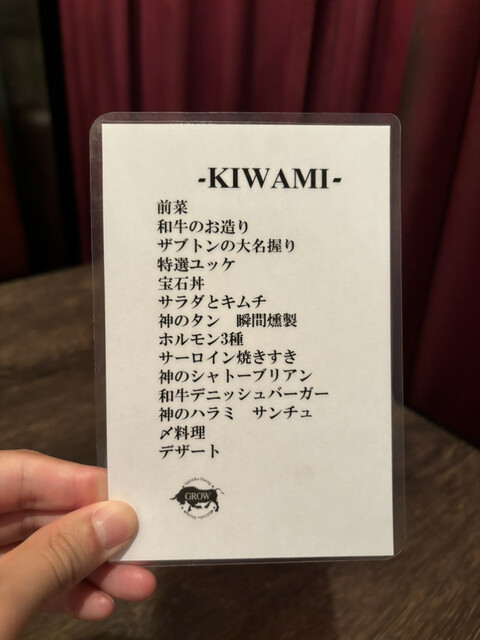 -KIWAMI-
前菜
和牛のお造り
ザブトンの大名握り
特選ユッケ
宝石丼
サラダとキムチ
神のタン　瞬間燻製
ホルモン3種
サーロイン焼きすき
神のシャトーブリアン
和牛デニッシュバーガー
神のハラミ　サンチュ
〆料理
デザート
GROW